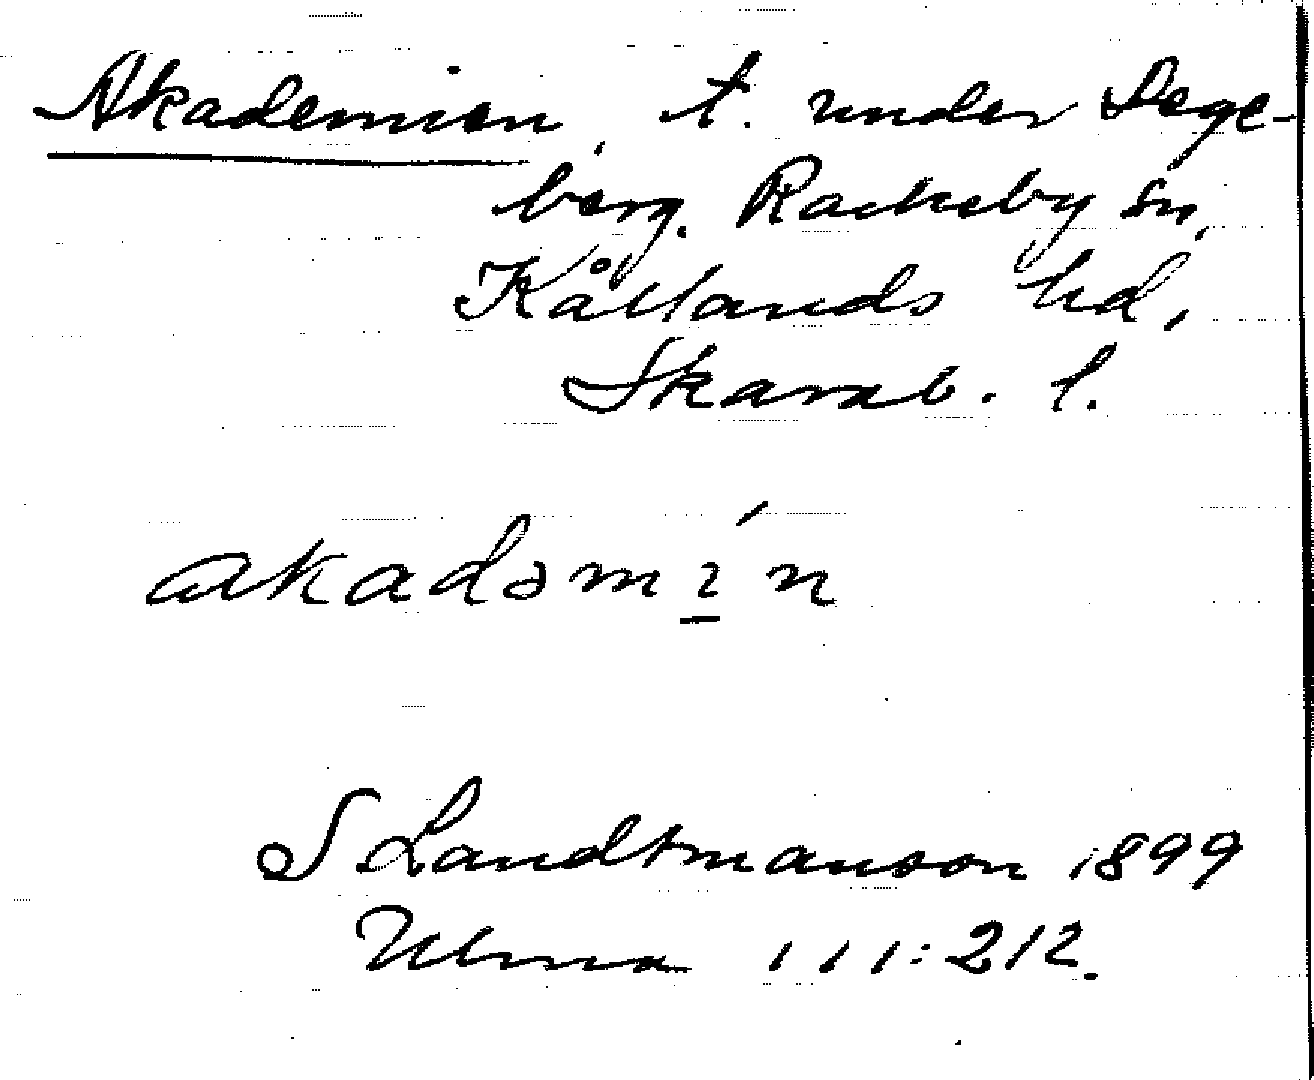 Akademien, t. under Dege-
berg. Rackeby sn,
Kållands hd,
Skarab. l.
akadəmín
S Landtmanson 1899
Ulma 111:212.